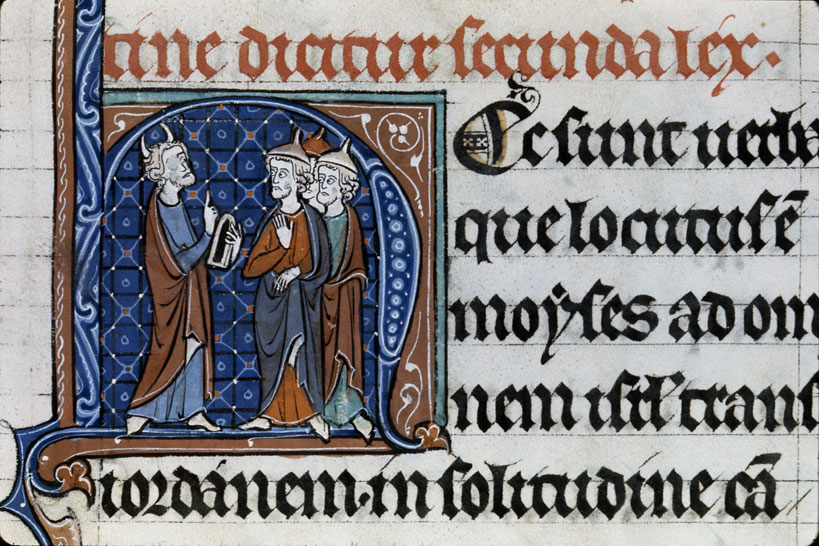 tine dicitur secunda lex.
Ec sunt uerba
que locutus ē
moyses ad om
nem isrł trans
iordanem. in solitudine cā